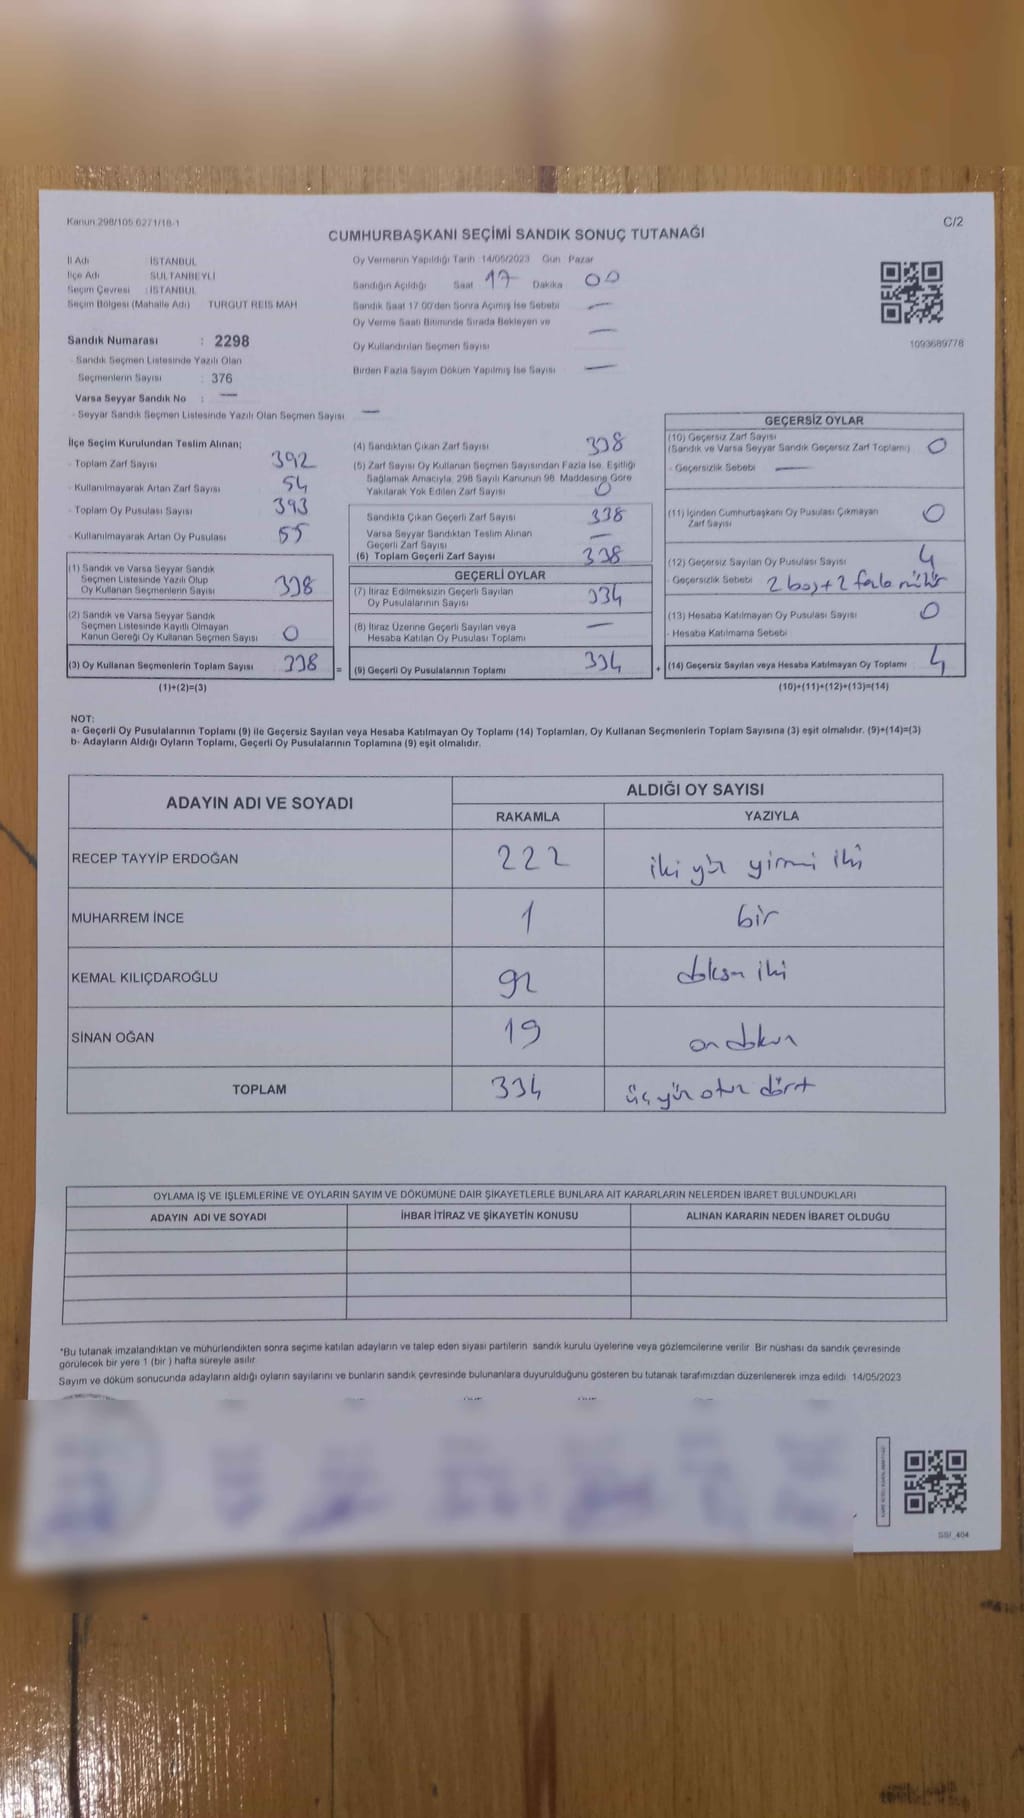 Kanun:298/105 6271/18-1
C/2
CUMHURBAŞKANI SEÇİMİ SANDIK SONUÇ TUTANAĞI
İl Adı : İSTANBUL
İlçe Adı : SULTANBEYLİ
Seçim Çevresi : İSTANBUL
Seçim Bölgesi (Mahalle Adı) TURGUT REIS MAH
Sandık Numarası : 2298
- Sandık Seçmen Listesinde Yazılı Olan
Seçmenlerin Sayısı : 376
Varsa Seyyar Sandık No : —
- Seyyar Sandık Seçmen Listesinde Yazılı Olan Seçmen Sayısı —
Oy Vermenin Yapıldığı Tarih :14/05/2023 Gün Pazar
Sandığın Açıldığı Saat 17 Dakika 00
Sandık Saat 17.00'den Sonra Açımış İse Sebebi —
Oy Verme Saati Bitiminde Sırada Bekleyen ve
Oy Kullandırılan Seçmen Sayısı —
Birden Fazla Sayım Döküm Yapılmış İse Sayısı —
1093689778
İlçe Seçim Kurulundan Teslim Alınan;
- Toplam Zarf Sayısı 392
- Kullanılmayarak Artan Zarf Sayısı 54
- Toplam Oy Pusulası Sayısı 393
- Kullanılmayarak Artan Oy Pusulası 55
(1) Sandık ve Varsa Seyyar Sandık
Seçmen Listesinde Yazılı Olup
Oy Kullanan Seçmenlerin Sayısı 338
(2) Sandık ve Varsa Seyyar Sandık
Seçmen Listesinde Kayıtlı Olmayan
Kanun Gereği Oy Kullanan Seçmen Sayısı 0
(3) Oy Kullanan Seçmenlerin Toplam Sayısı 338 =
(1)+(2)=(3)
(4) Sandıktan Çıkan Zarf Sayısı 338
(5) Zarf Sayısı Oy Kullanan Seçmen Sayısından Fazla İse, Eşitliği
Sağlamak Amacıyla, 298 Sayılı Kanunun 98. Maddesine Göre
Yakılarak Yok Edilen Zarf Sayısı 0
Sandıkta Çıkan Geçerli Zarf Sayısı 338
Varsa Seyyar Sandıktan Teslim Alınan
Geçerli Zarf Sayısı —
(6) Toplam Geçerli Zarf Sayısı 338
GEÇERLİ OYLAR
(7) İtiraz Edilmeksizin Geçerli Sayılan
Oy Pusulalarının Sayısı 334
(8) İtiraz Üzerine Geçerli Sayılan veya
Hesaba Katılan Oy Pusulası Toplamı —
(9) Geçerli Oy Pusulalarının Toplamı 334 +
GEÇERSİZ OYLAR
(10) Geçersiz Zarf Sayısı
(Sandık ve Varsa Seyyar Sandık Geçersiz Zarf Toplamı) 0
- Geçersizlik Sebebi —
(11) İçinden Cumhurbaşkanı Oy Pusulası Çıkmayan
Zarf Sayısı 0
(12) Geçersiz Sayılan Oy Pusulası Sayısı 4
- Geçersizlik Sebebi 2 boş + 2 fazla mühür
(13) Hesaba Katılmayan Oy Pusulası Sayısı 0
- Hesaba Katılmama Sebebi
(14) Geçersiz Sayılan veya Hesaba Katılmayan Oy Toplamı 4
(10)+(11)+(12)+(13)=(14)
NOT:
a- Geçerli Oy Pusulalarının Toplamı (9) ile Geçersiz Sayılan veya Hesaba Katılmayan Oy Toplamı (14) Toplamları, Oy Kullanan Seçmenlerin Toplam Sayısına (3) eşit olmalıdır. (9)+(14)=(3)
b- Adayların Aldığı Oyların Toplamı, Geçerli Oy Pusulalarının Toplamına (9) eşit olmalıdır.
ADAYIN ADI VE SOYADI
ALDIĞI OY SAYISI
RAKAMLA YAZIYLA
RECEP TAYYİP ERDOĞAN 222 iki yüz yirmi iki
MUHARREM İNCE 1 bir
KEMAL KILIÇDAROĞLU 92 doksan iki
SİNAN OĞAN 19 on dokuz
TOPLAM 334 üç yüz otuz dört
OYLAMA İŞ VE İŞLEMLERİNE VE OYLARIN SAYIM VE DÖKÜMÜNE DAİR ŞİKAYETLERLE BUNLARA AİT KARARLARIN NELERDEN İBARET BULUNDUKLARI
ADAYIN ADI VE SOYADI İHBAR İTİRAZ VE ŞİKAYETİN KONUSU ALINAN KARARIN NEDEN İBARET OLDUĞU
*Bu tutanak imzalandıktan ve mühürlendikten sonra seçime katılan adayların ve talep eden siyasi partilerin sandık kurulu üyelerine veya gözlemcilerine verilir. Bir nüshası da sandık çevresinde
görülecek bir yere 1 (bir ) hafta süreyle asılır.
Sayım ve döküm sonucunda adayların aldığı oyların sayılarını ve bunların sandık çevresinde bulunanlara duyurulduğunu gösteren bu tutanak tarafımızdan düzenlenerek imza edildi. 14/05/2023